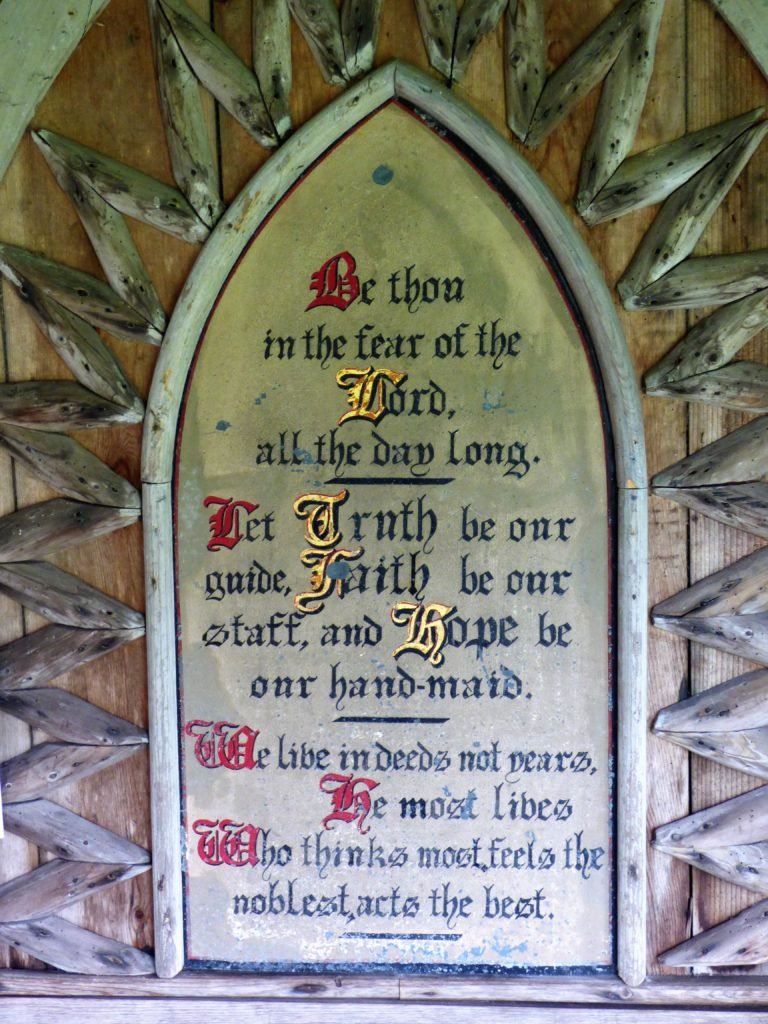 Be thou
in the fear of the
Lord,
all the day long.
Let Truth be our
guide, Faith be our
staff, and Hope be
our hand-maid.
We live in deeds not years,
He most lives
Who thinks most, feels the
noblest, acts the best.